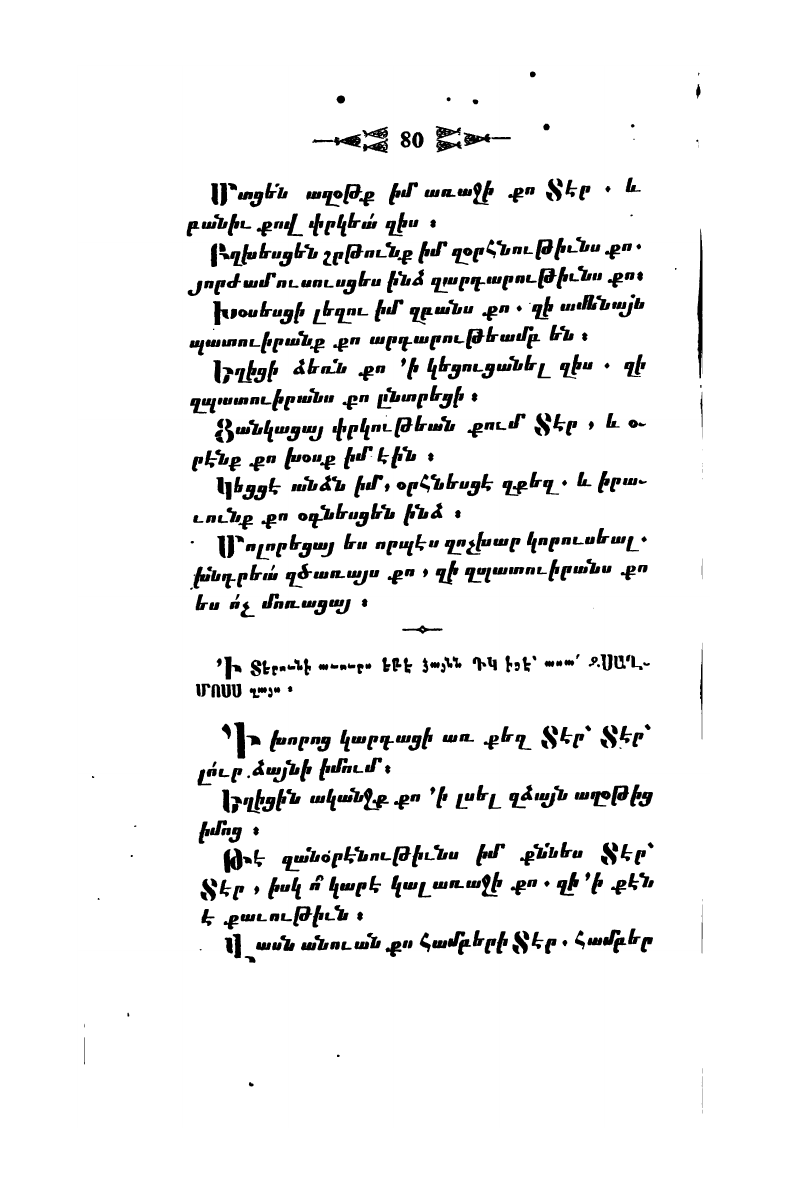 80
Մտցե՛ն աղօթք իմ առաջի քո Տէր ․ և
բանիւ քով փրկեա՛ զիս ։
Բղխեսցեն շրթունք իմ զօրհնութիւնս քո ․
յորժամ ուսուսցես ինձ զարդարութիւնս քո։
Խօսեսցի լեզու իմ զբանս քո ․ զի ամենայն
պատուիրանք քո արդարութեամբ են ։
Եղիցի ձեռն քո ՚ի կեցուցանել զիս ․ զի
զպատուիրանս քո ընտրեցի ։
Ցանկացայ փրկութեան քում Տէր , և օ֊
րէնք քո խօսք իմ էին ։
Կեցցէ անձն իմ, օրհնեսցէ զքեզ ․ և իրա֊
ւունք քո օգնեսցեն ինձ ։
Մոլորեցայ ես որպէս ոչխար կորուսեալ ․
խնդրեա՛ զծառայս քո , զի զպատուիրանս քո
ես ո՛չ մոռացայ ։
՚Ի Տէրունի աւուրս եթէ ձայնն ԴԿ իցէ՝ ասա՛ զՍԱՂ֊
ՄՈՍՍ զայս ։
՚Ի խորոց կարդացի առ քեզ Տէր՝ Տէր՝
լո՛ւր ձայնի իմում ։
Եղիցին ականջք քո ՚ի լսել զձայն աղօթից
իմոց ։
Թէ զանօրէնութիւնս իմ քննես Տէր՝
Տէր , իսկ ո՞ կարէ կալ առաջի քո ․ զի ՚ի քէն
է քաւութիւն ։
Վասն անուան քո համբերի Տէր ․ համբեր